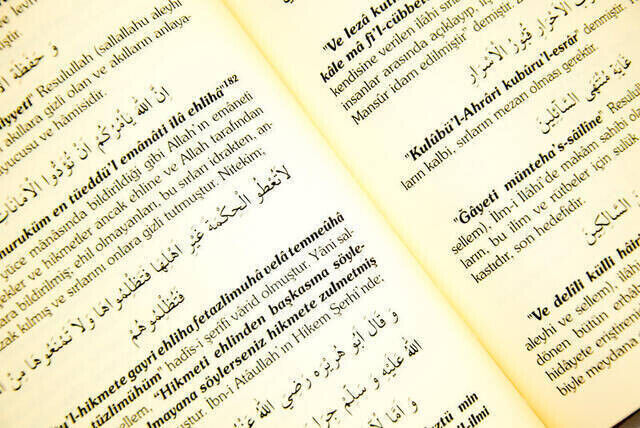 ilyyeti" Resulullah (sallallahu aleyhi
akıllara gizli olan ve akılların anlaya-
uyucusu ve hâmisidir.
إِنَّ اللهَ يَأْمُرُكُمْ أَنْ تُؤَدُّوا الْأَمَانَاتِ
murukûm en tüeddû'l emânâti ilâ ehlihâ"182
yüce mânâsında bildirildiği gibi Allah'ın emâneti
ekler ve hikmetler ancak ehline ve Allah tarafından
ara bildirilmiş; ehil olmayanları, bu sırları idrakten, an-
zak kılmış ve sırlarını onlara gizli tutmuştur. Nitekim;
لَا تُعْطُوا الْحِكْمَةَ غَيْرَ أَهْلِهَا فَتَظْلِمُوهَا وَلَا تَمْنَعُوهَا مِنْ
فَتَظْلِمُوهُمْ
u'l-hikmete gayri ehliha fetazlimuhâ velâ temneûhâ
tüzlimühüm" hadis-i şerifi vârid olmuştur. Yâni sal-
sellem, "Hikmeti ehlinden başkasına söyle-
lmayana söylerseniz hikmete zulmetmiş
ştur. Ibn-i Atâullah ın Hikem Şerhi'nde;
وَ قَالَ أَبُو هُرَيْرَةَ رَضِيَ اللهُ
اللهُ عَلَيْهِ وَ سَلَّمَ
"Ve lezâ kul
kâle mâ fi'l-cübbe
kendisine verilen ilâhi sın
insanlar arasında açıklayıp, ilg
Mansûr idam edilmiştir" demiştir.
قُبُورُ الْأَسْرَارِ
"Kulûbü'l-Ahrâri kubûrü'l-esrâr"
ların kalbi, sırların mezarı olması gerektir.
غَايَةُ مُنْتَهَى السَّائِلِينَ
"Gâyeti münteha's-sâilîne"
sellem), İlm-i İlâhi'de makam sahibi ol
ların, bu ilim ve rütbeler için sülûk
kastidir, son hedefidir.
السَّالِكِينَ
"Ve delili külli hâir
aleyhi ve sellem), âlem
dönen bütün erbâb
hidâyete eriştiren
biyle meydana